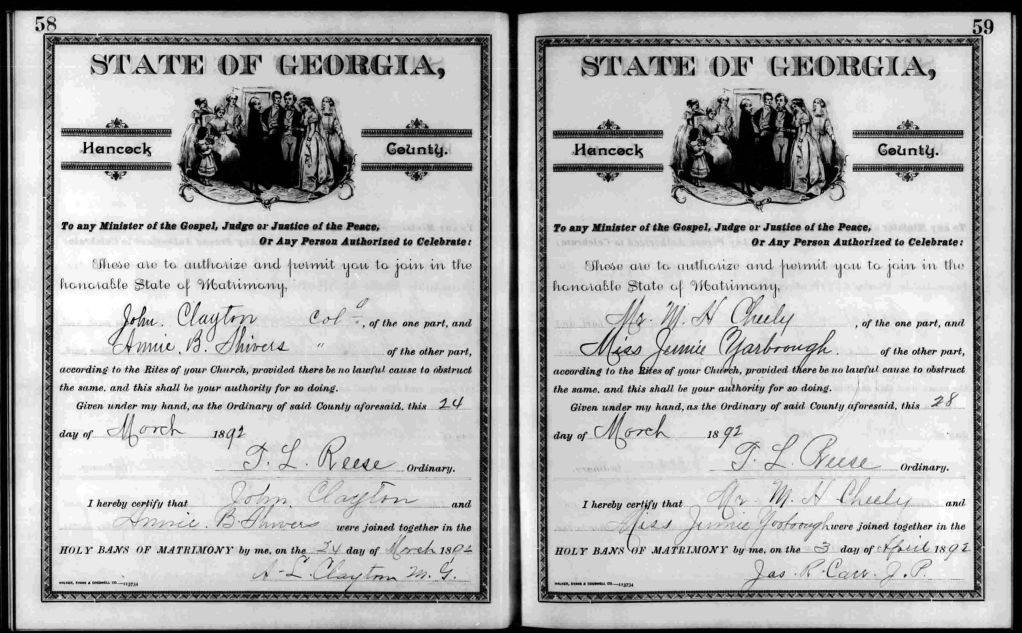 58
STATE OF GEORGIA,
Hancock County.
To any Minister of the Gospel, Judge or Justice of the Peace,
Or Any Person Authorized to Celebrate:
These are to authorize and permit you to join in the
honorable State of Matrimony,
John. Clayton Col , of the one part, and
Annie. B. Shivers " of the other part,
according to the Rites of your Church, provided there be no lawful cause to obstruct
the same, and this shall be your authority for so doing.
Given under my hand, as the Ordinary of said County aforesaid, this 24
day of March 1892
T. L. Reese Ordinary.
I hereby certify that John Clayton and
Annie. B Shivers were joined together in the
HOLY BANS OF MATRIMONY by me, on the 24 day of March 1892
A. L. Clayton M. G.
59
STATE OF GEORGIA,
Hancock County.
To any Minister of the Gospel, Judge or Justice of the Peace,
Or Any Person Authorized to Celebrate:
These are to authorize and permit you to join in the
honorable State of Matrimony,
Mr. M. H Cheely , of the one part, and
Miss Jennie Yarboough. of the other part,
according to the Rites of your Church, provided there be no lawful cause to obstruct
the same, and this shall be your authority for so doing.
Given under my hand, as the Ordinary of said County aforesaid, this 28
day of March 1892
T. L. Reese Ordinary.
I hereby certify that Mr. M. H Cheely and
Miss Jennie were joined together in the
HOLY BANS OF MATRIMONY by me, on the 3 day of April 1892
Jas. R. Carr. J. P.